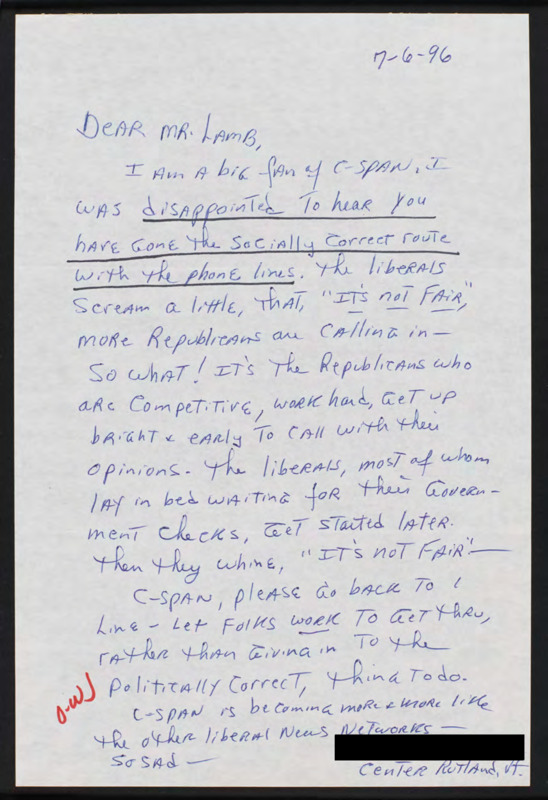 7-6-96
Dear Mr. Lamb,
I am a big fan of C-SPAN. I
was disappointed to hear you
have gone the socially correct route
with the phone lines. The liberals
scream a little, that, "It's not fair,"
more Republicans are calling in—
So what! It's the Republicans who
are competitive, work hard, get up
bright & early to call with their
opinions. The liberals, most of whom
lay in bed waiting for their govern-
ment checks, get started later.
Then they whine, "It's not fair"—
C-SPAN, please go back to 1
line - let folks work to get thru,
rather than giving in to the
politically correct, thing to do.
C-SPAN is becoming more & more like
the other liberal news networks—
So sad—
Center Rutland, Vt.